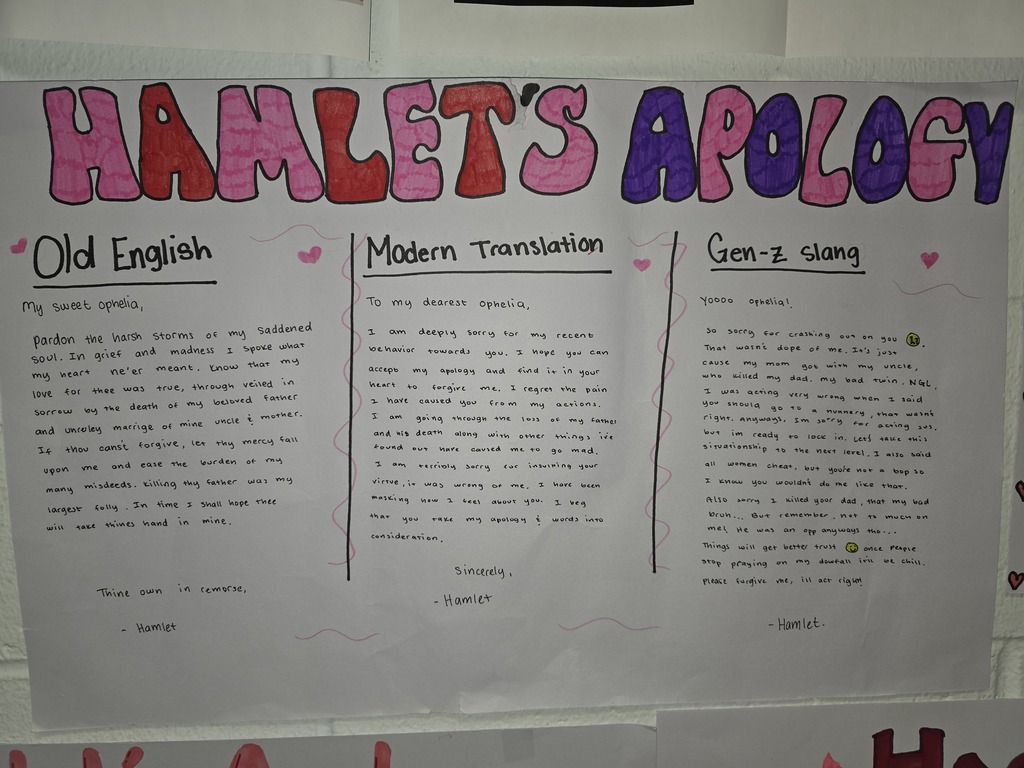 HAMLET'S APOLOGY
Old English
My sweet ophelia,
Pardon the harsh storms of my saddened
soul. In grief and madness I spoke what
my heart ne'er meant. Know that my
love for thee was true, through veiled in
sorrow by the death of my beloved father
and unreley marrige of mine uncle & mother.
If thou canst forgive, let thy mercy fall
upon me and ease the burden of my
many misdeeds. killing thy father was my
largest folly. In time I shall hope thee
will take thines hand in mine.
Thine own in remorse,
- Hamlet
Modern Translation
To my dearest ophelia,
I am deeply sorry for my recent
behavior towards you. I hope you can
accept my apology and find it in your
heart to forgive me. I regret the pain
I have caused you from my actions.
I am going through the loss of my father
and his death along with other things i've
found out have caused me to go mad.
I am terribly sorry for insulting your
virtue, is was wrong of me. I have been
masking how I feel about you. I beg
that you take my apology & words into
consideration.
Sincerely,
- Hamlet
Gen-z slang
Yoooo ophelia!
So sorry for crashing out on you
That wasn't dope of me. It's just
cause my mom got with my uncle,
who killed my dad. my bad twin. NGL,
I was acting very wrong when I said
you should go to a nunnery, that wasn't
right. anyways, Im sorry for acting sus,
but im ready to lock in. Let's take this
situationship to the next level. I also said
all women cheat, but you're not a bop so
I know you wouldn't do me like that.
Also sorry I killed your dad, that my bad
bruh... But remember, not to much on
me! He was an opp anyways tho...
Things will get better trust once people
stop praying on my downfall it'll be chill.
please forgive me, ill act right!
- Hamlet.